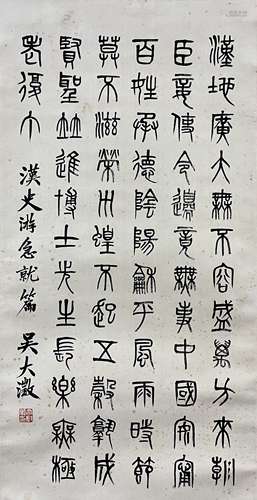 漢地廣大無不容盛萬方來朝
臣妾使令邊竟無事中國安寧
百姓承德陰陽龢平風雨時節
莫不滋榮災蝗不起五穀孰成
賢聖竝進博士先生長樂無極
老復丁 漢史游急就篇 吳大澂